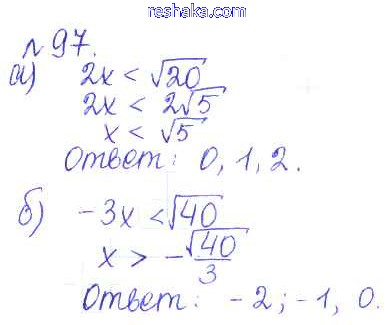 reshaka.com
№97.
а) 2x < √20
2x < 2√5
x < √5
Ответ: 0, 1, 2.
б) -3x < √40
x > -√40/3
Ответ: -2; -1, 0.